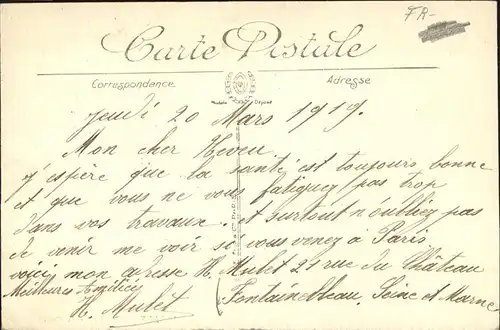 FR-
Carte Postale
Correspondance
Adresse
Modèle Déposé
Jeudi 20 Mars 1919.
Mon cher Neveu
J'espère que ta santé est toujours bonne
et que vous ne vous fatiguez pas trop
dans vos travaux. et surtout n'oubliez pas
de venir me voir si vous venez à Paris
voici mon adresse H. Mulet 21 rue du Château
Meilleures Amitiés Fontainebleau. Seine et Marne
H. Mulet